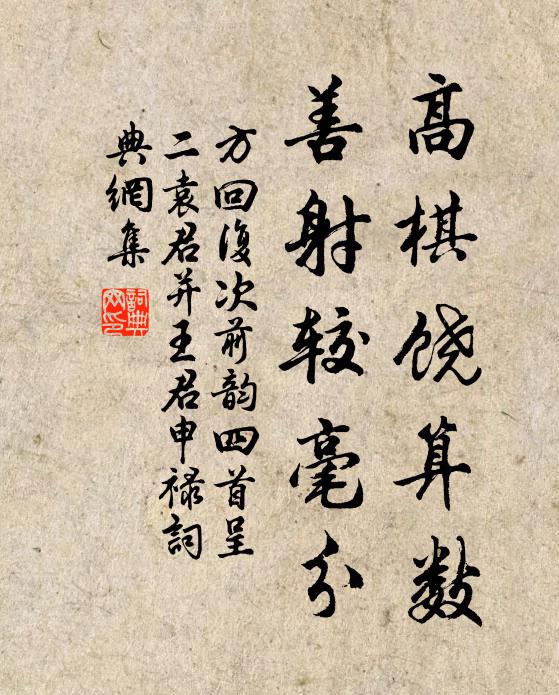 高棋饶算数
善射较毫分
方回復次前韵四首呈
二袁君并王君申禄詞
典網集
詞典網印